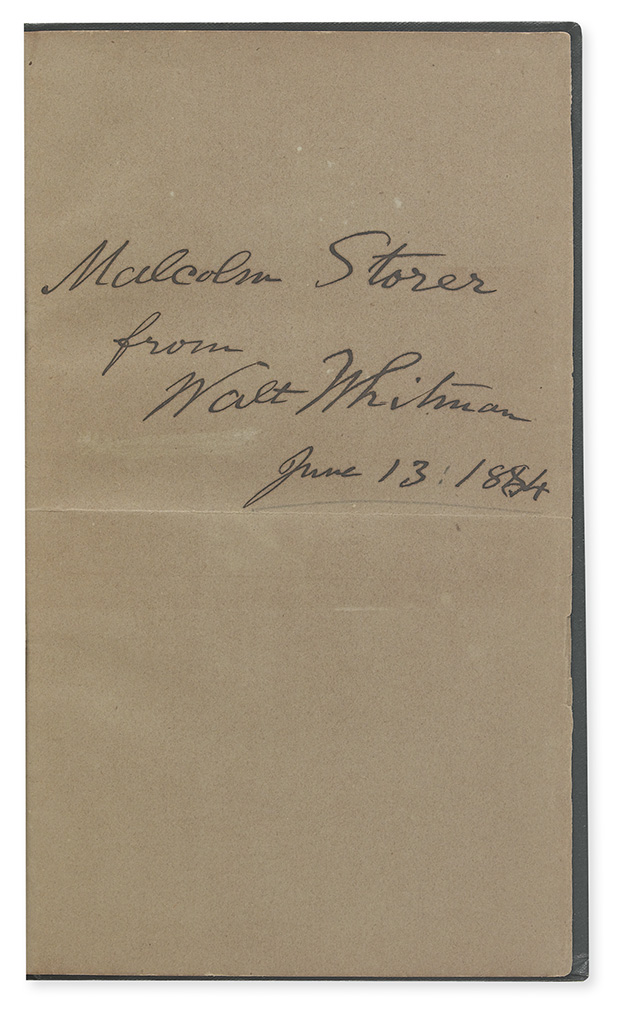 Malcolm Storer
from
Walt Whitman
June 13: 1884